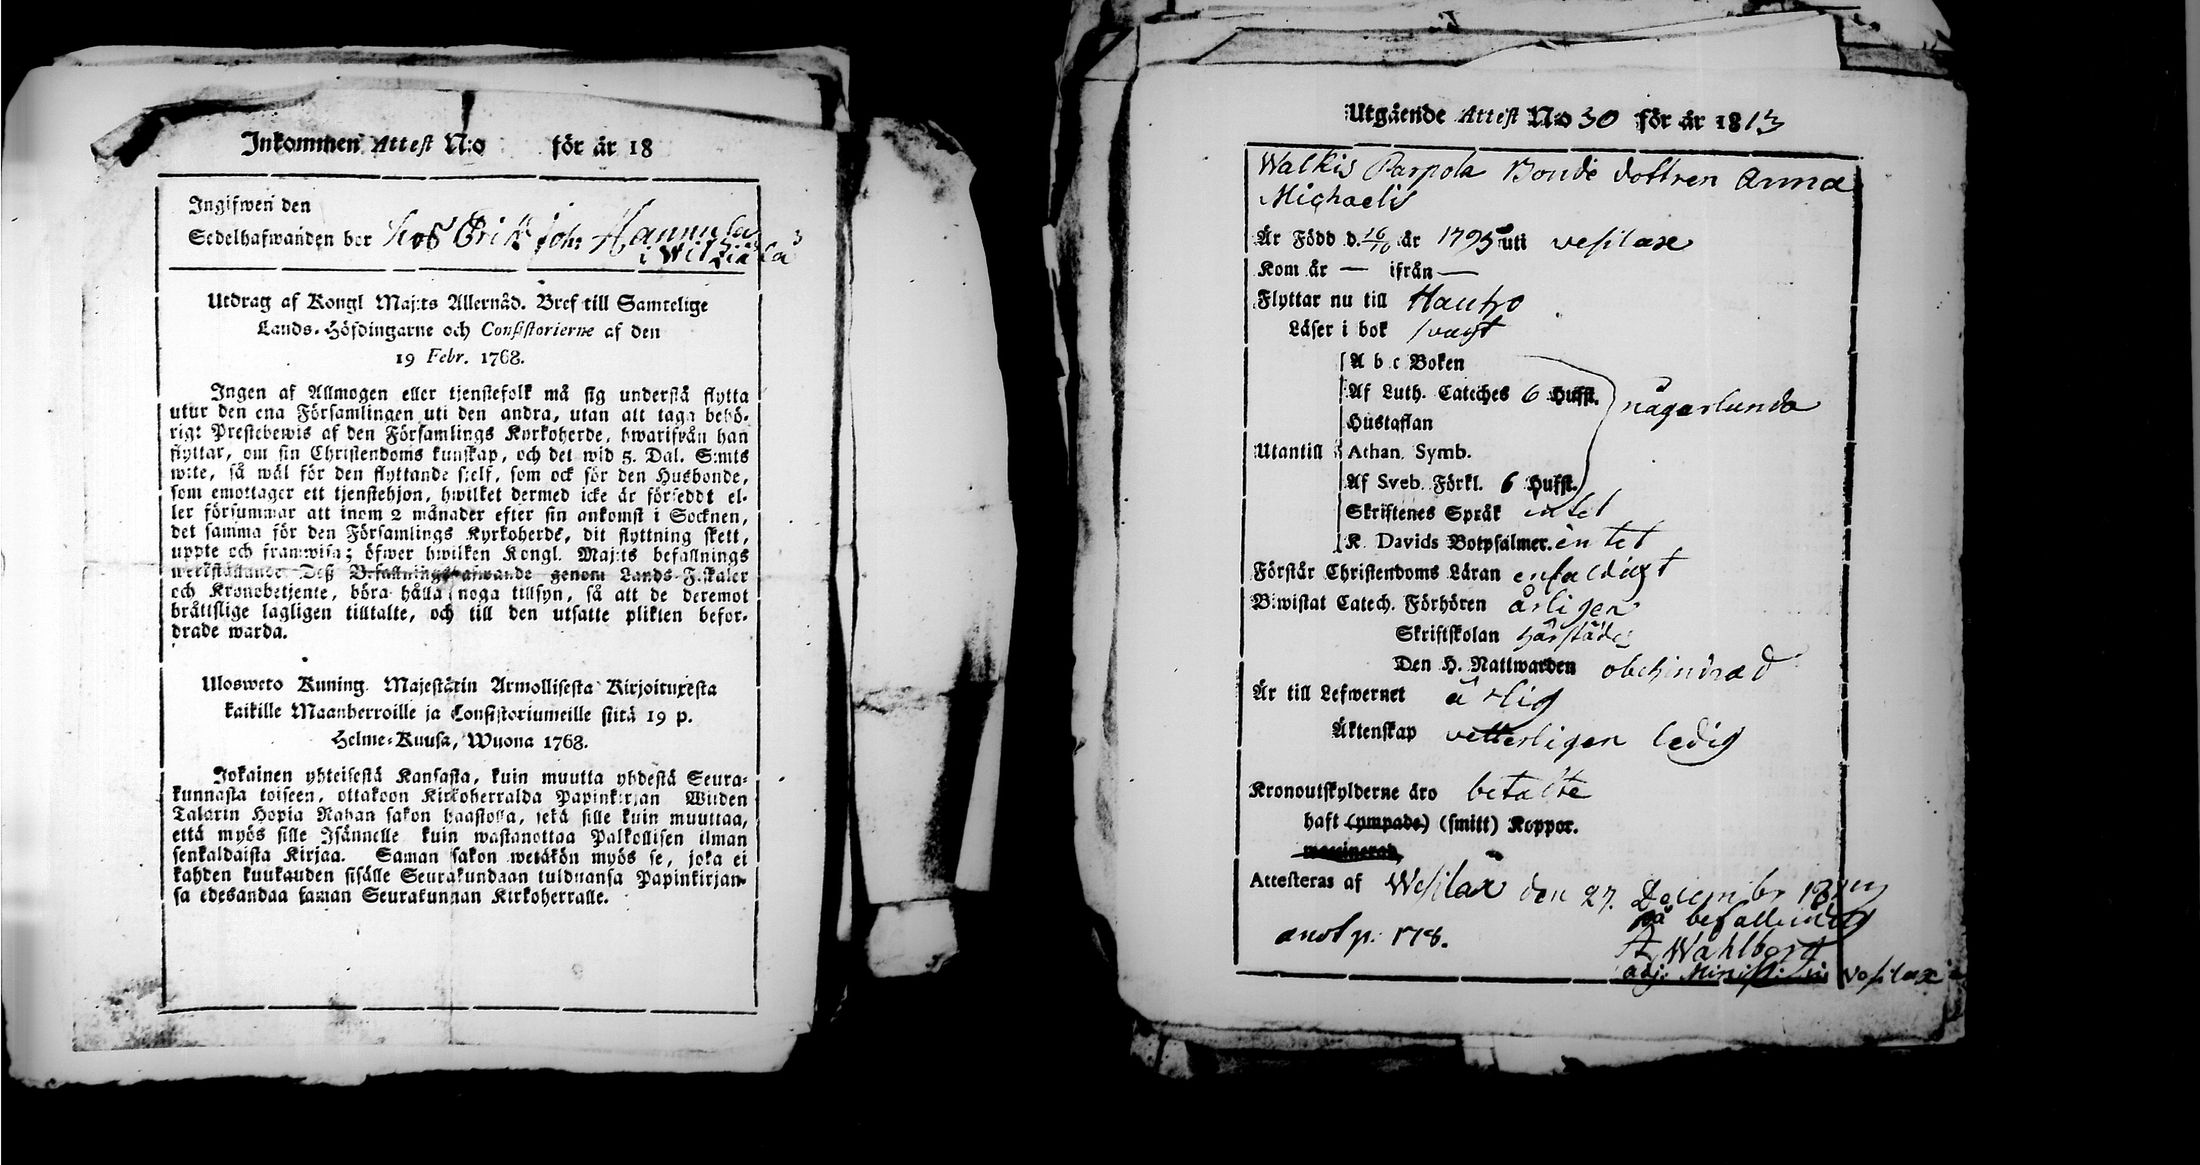 Inkommen Attest N:o för år 18
Ingifwen den
Sedelhafwanden bor hos Erik Joh: Hannula
i Wilkiälä
Utdrag af Kongl Maj:ts Allernåd. Bref till Samtelige
Lands-Höfdingarne och Consistorierne af den
19 Febr. 1768.
Ingen af Allmogen eller tjenstefolk må sig understå flytta
utur den ena Församlingen uti den andra, utan att taga behö-
rigt Prestebewis af den Församlings Kyrkoherde, hwarifrån han
flyttar, om sin Christendoms kunskap, och det wid 5. Dal. S:mts
wite, så wäl för den flyttande sielf, som ock för den Husbonde,
som emottager ett tjenstehjon, hwilket dermed icke är försedt el-
ler försummar att inom 2 månader efter sin ankomst i Socknen,
det samma för den Församlings Kyrkoherde, dit flyttning skett,
uppte och framwisa; öfwer hwilken Kongl. Maj:ts befallnings
werkställande Deß Befallningshafwande genom Lands-Fiskaler
och Kronobetjente, böra hålla noga tillsyn, så att de deremot
bråttslige lagligen tilltalte, och till den utsatte plikten befor-
drade warda.
Ulosweto Kuning. Majestätin Armollisesta Kirjoituxesta
kaikille Maanherroille ja Consistoriumeille siitä 19 p.
Helme-Kuusa, Wuona 1768.
Jokainen yhteisestä Kansasta, kuin muutta yhdestä Seura-
kunnasta toiseen, ottakoon Kirkoherralda Papinkirjan Wiiden
Talarin Hopia Rahan sakon haastolla, sekä sille kuin muuttaa,
että myös sille Isännelle kuin wastanottaa Palkollisen ilman
senkaldaista Kirjaa. Saman sakon wetäkön myös se, joka ei
kahden kuukauden sisälle Seurakundaan tulduansa Papinkirjan-
sa edesandaa saman Seurakunnan Kirkoherralle.
Utgående Attest N:o 30 för år 1813
Walkis Parpola Bonde dottren Anna
Michaelis
Är Född d. 16/10 år 1795 uti vesilax
Kom år — ifrån —
Flyttar nu till Hauho
Läser i bok svagt
A b c Boken
Af Luth. Cateches 6 Hufst. någorlunda
Hustaflan
Utantill Athan. Symb.
Af Sveb. Förkl. 6 Hufst.
Skriftenes Språk intet
K. Davids Botpsalmer. intet
Förstår Christendoms Läran enfaldigt
Biwistat Catech. Förhören årligen
Skriftskolan härstädes
Den H. Nattwarden obehindrad
Är till Lefwernet ärlig
Äktenskap vetterligen ledig
Kronoutskylderne äro betalte
haft (ympade) (smitt) Koppor.
Attesteras af Wesilax den 27. December
på befallning
A Wahlberg
adj: Minist: in Vesilax
anot p. 178.